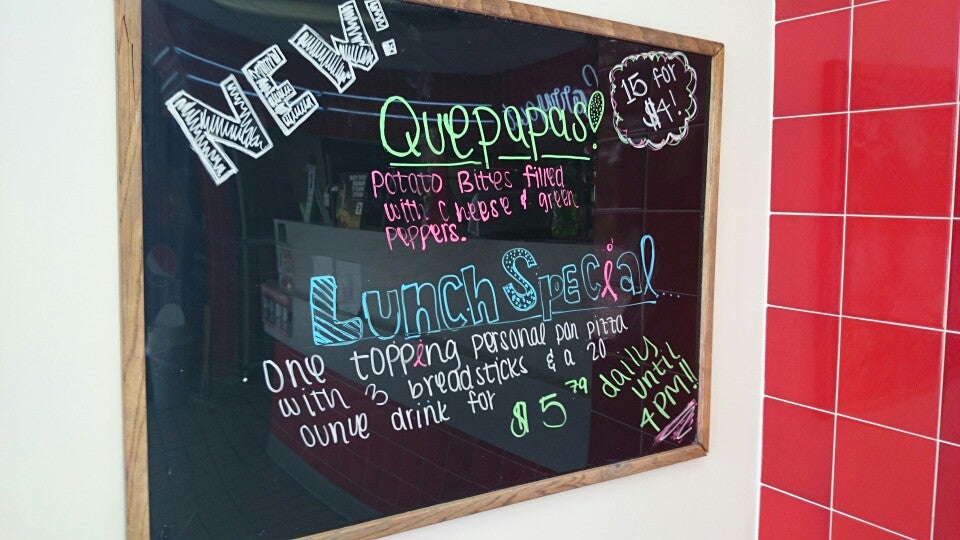 NEW!
Quepapas!
15 for
$4!
Potato Bites filled
with cheese & green
peppers.
Lunch Special...
One topping personal pan pizza
with 3 breadsticks & a 20
ounve drink for $5 79
daily
until
4PM!!